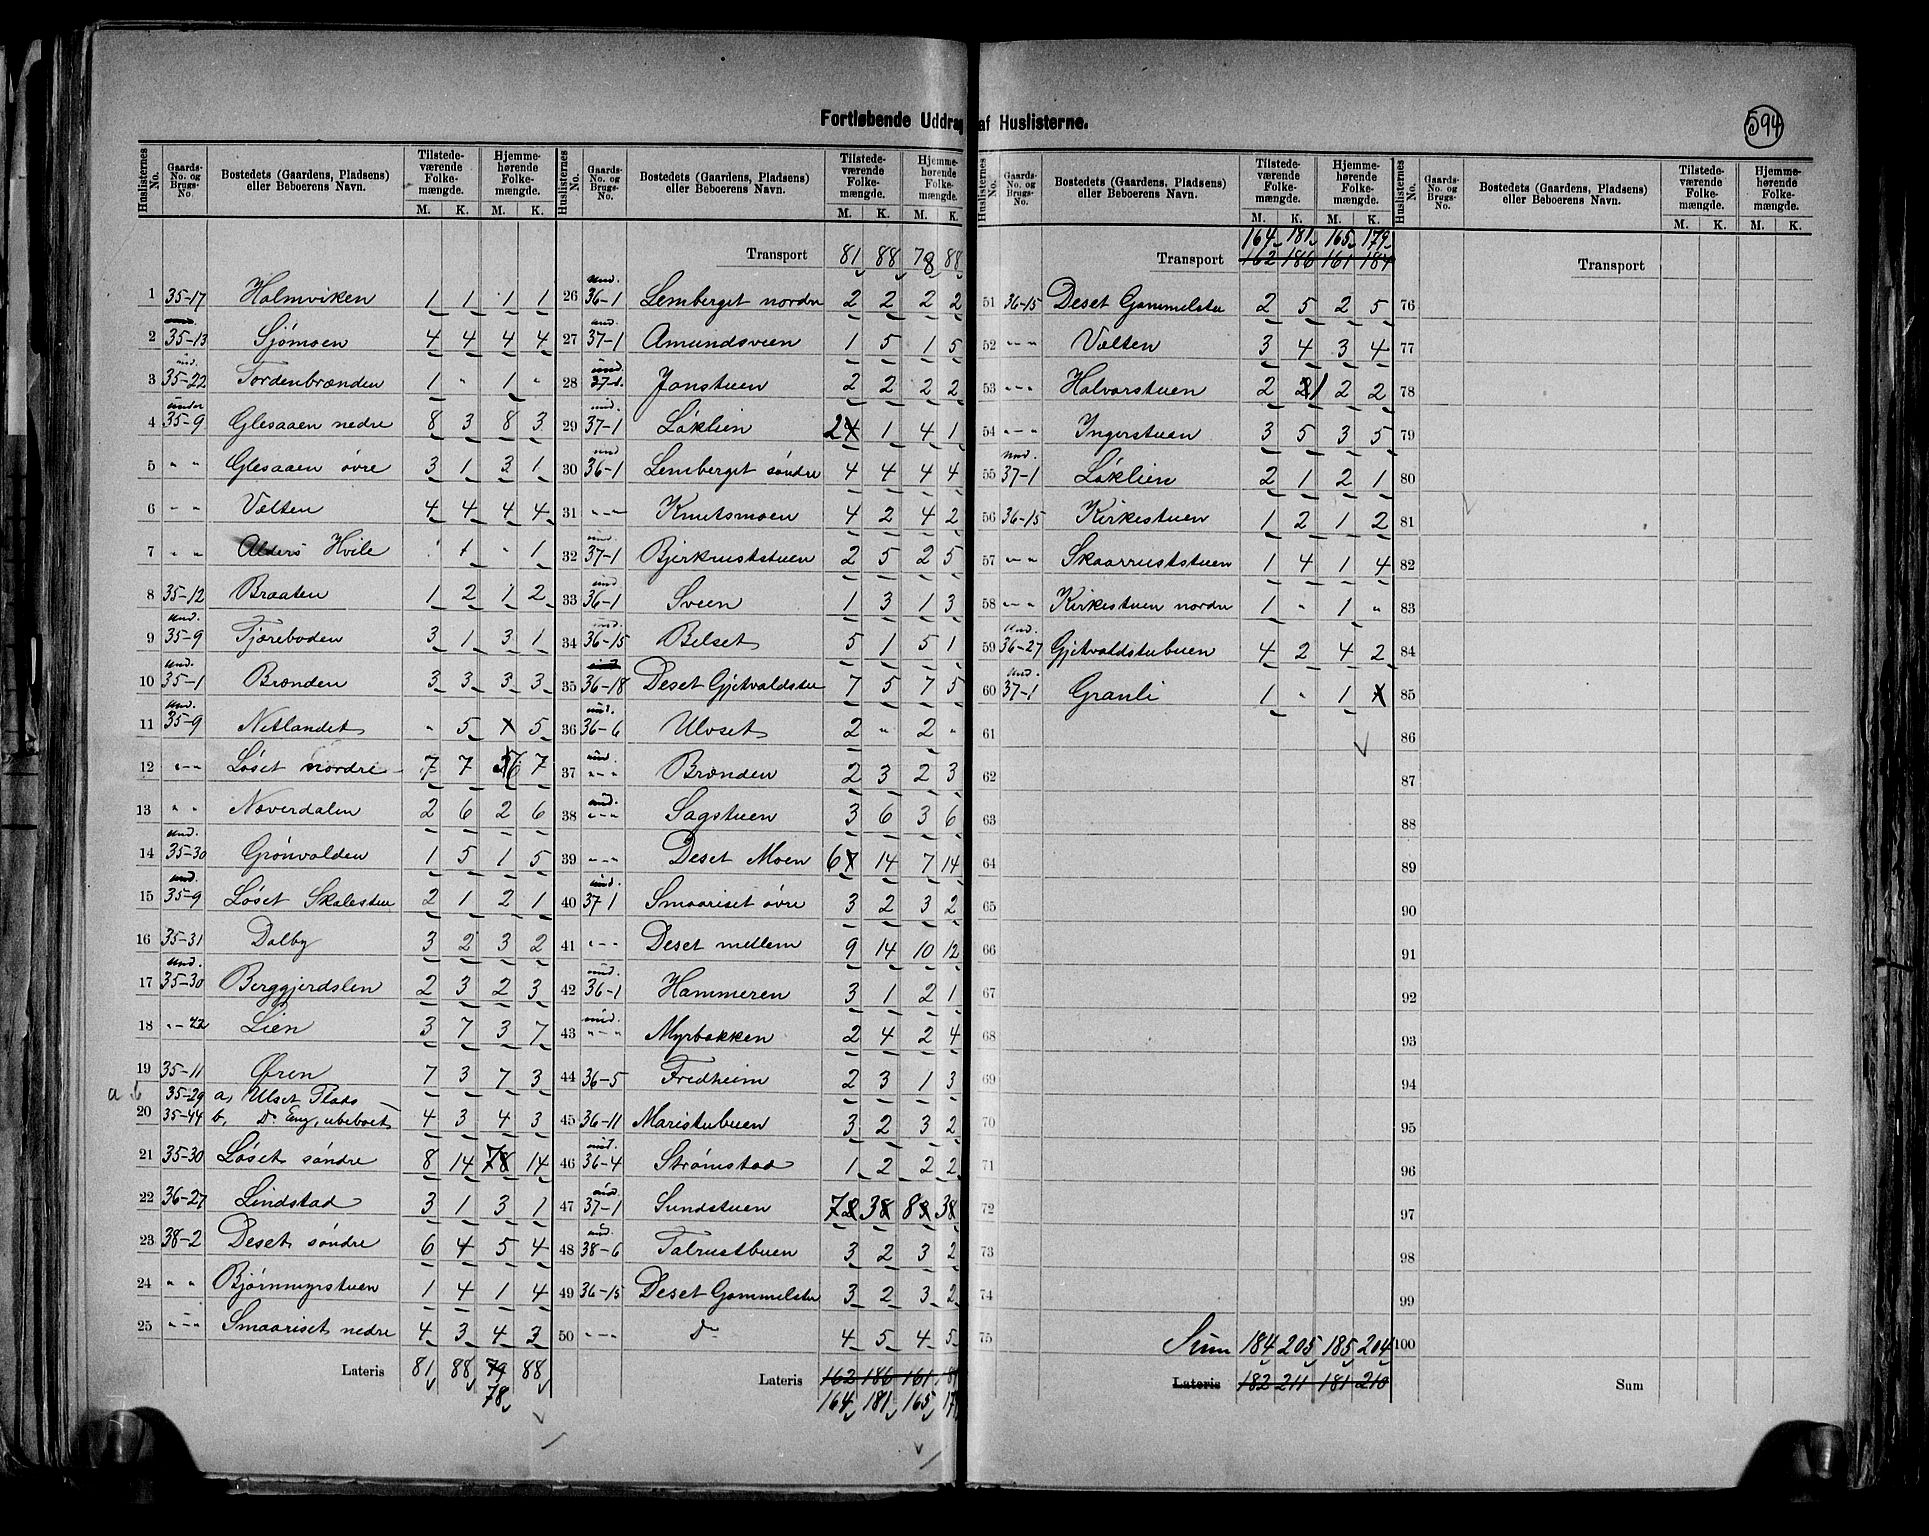 594
Fortløbende Uddrag af Huslisterne.
Huslisternes No. Gaards-No. og Brugs-No. Bostedets (Gaardens, Pladsens) eller Beboerens Navn. Tilstedeværende Folkemængde. M. K. Hjemmehørende Folkemængde. M. K.
1 35-17 Holmviken 1 1 1 1
2 35-13 Sjømoen 4 4 4 4
3 und. 35-22 Tordenbrænden 1 " 1 "
4 under 35-9 Glesaaen nedre 8 3 8 3
5 " " Glesaaen øvre 3 1 3 1
6 " " Vælten 4 4 4 4
7 " " Alders Hvile " 1 " 1
8 35-12 Braaten 1 2 1 2
9 und. 35-9 Tjæreboden 3 1 3 1
10 und. 35-1 Brænden 3 3 3 3
11 und. 35-9 Netlandet " 5 x 5
12 " " Løset nordre 7 7 6 7
13 " " Noverdalen 2 6 2 6
14 und. 35-30 Grönvolden 1 5 1 5
15 und. 35-9 Løset Skalestuen 2 1 2 1
16 35-31 Dalby 3 2 3 2
17 und. 35-30 Berggjerdslien 2 3 2 3
18 "-42 Lien 3 7 3 7
19 35-11 Øren 7 3 7 3
a b 35-29 a, Ulset Plads
20 35-44 b, Do Eng, ubeboet 4 3 4 3
21 35-30 Løset søndre 8 14 78 14
22 36-27 Lindstad 3 1 3 1
23 38-2 Deset søndre 6 4 5 4
24 " " Bjørnmyrstuen 1 4 1 4
25 " " Smaariset nedre 4 3 4 3
Lateris 81 88 79 88
78
Transport 81 88 78 88
26 und. 36-1 Lemberget nordre 2 2 2 2
27 und. 37-1 Amundsveen 1 5 1 5
28 und. 37-1 Jonstuen 2 2 2 2
29 und. 37-1 Løklien 24 1 4 1
30 und 36-1 Lemberget søndre 4 4 4 4
31 " " Knutsmoen 4 2 4 2
32 und. 37-1 Bjerknuststuen 2 5 2 5
33 und. 36-1 Sveen 1 3 1 3
34 und. 36-15 Belset 5 1 5 1
35 und 36-18 Deset Gjetvoldstu 7 5 7 5
36 und. 36-6 Ulvset 2 " 2 "
37 und " " Brænden 2 3 2 3
38 und. " " Sagstuen 3 6 3 6
39 " " Deset Moen 67 14 7 14
40 und. 37-1 Smaariset øvre 3 2 3 2
41 " " Deset mellem 9 14 10 12
42 und. 36-1 Hammeren 3 1 2 1
43 und. " " Myrbakken 2 4 2 4
44 36-5 Fredheim 2 3 1 3
45 36-11 Maristubuen 3 2 3 2
46 und. 36-4 Strømstad 1 2 2 2
47 und. 37-1 Sundstuen 78 38 89 38
48 und. 38-6 Talrustbuen 3 2 3 2
49 36-15 Deset Gammelstu 3 2 3 2
50 " " Do 4 5 4 5
Lateris 162 186 161 181
164 181 165 17
164 181 165 179
Transport 162 186 161 184
51 36-15 Deset Gammelstu 2 5 2 5
52 " " Vælten 3 4 3 4
53 " " Halvorstuen 2 21 2 2
54 " " Ingerstuen 3 5 3 5
55 und. 37-1 Løklien 2 1 2 1
56 36-15 Kirkestuen 1 2 1 2
57 " " Skaarruststuen 1 4 1 4
58 " " Kirkestuen nordre 1 " 1 "
59 und. 36-27 Gjetvoldstubuen 4 2 4 2
60 und. 37-1 Granli 1 " 1 x
61
62
63
64
65
66
67
68
69
70
71
72
73
74
75 Sum 184 205 185 204
Lateris 182 211 181 210
Transport
76
77
78
79
80
81
82
83
84
85
86
87
88
89
90
91
92
93
94
95
96
97
98
99
100
Sum